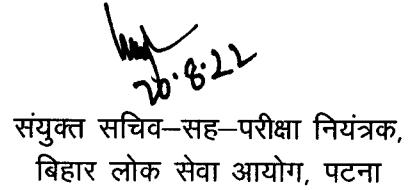 20.8.22
संयुक्त सचिव–सह–परीक्षा नियंत्रक,
बिहार लोक सेवा आयोग, पटना